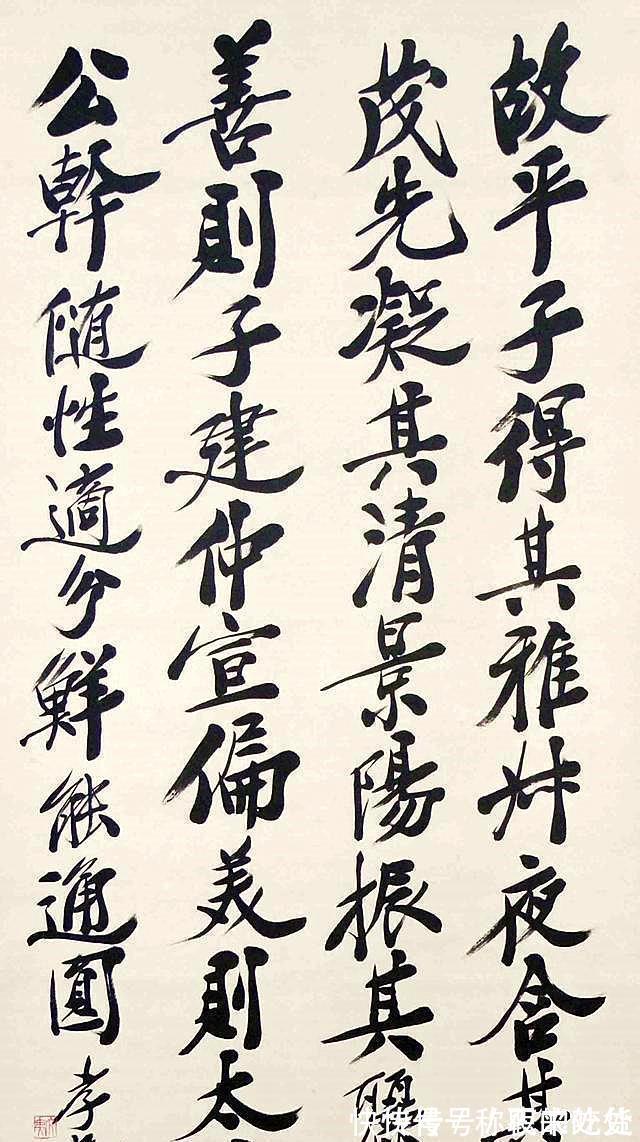 故平子得其雅叔夜含其
茂先凝其清景陽振其麗
善則子建仲宣偏美則太
公幹隨性適分鮮能通圓
孝